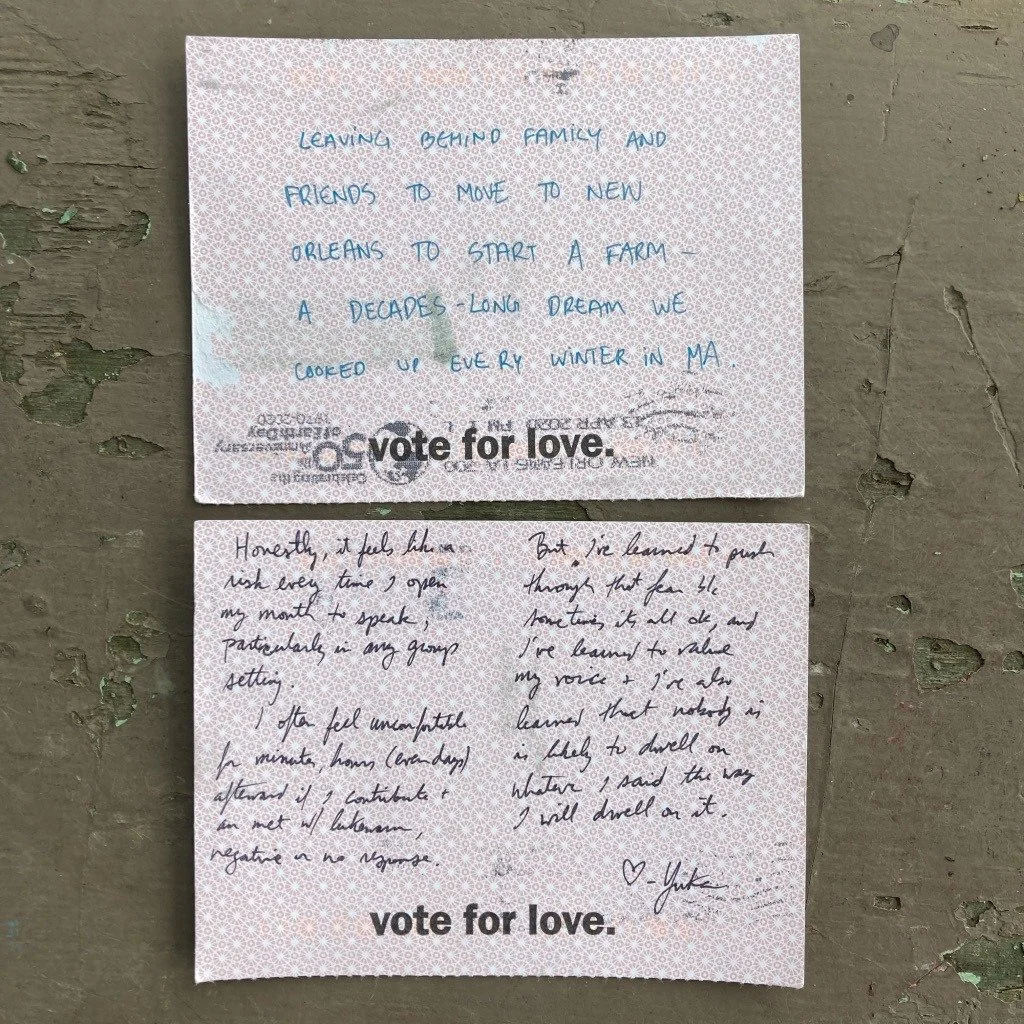 LEAVING BEHIND FAMILY AND
FRIENDS TO MOVE TO NEW
ORLEANS TO START A FARM –
A DECADES-LONG DREAM WE
COOKED UP EVERY WINTER IN MA.
NEW ORLEANS LA 700
23 APR 2020 PM
Celebrating the
50th
Anniversary
of Earth Day
1970-2020
vote for love.
Honestly, it feels like a
risk every time I open
my mouth to speak,
particularly in any group
setting.
I often feel uncomfortable
for minutes, hours (even days)
afterward if I contribute +
am met w/ lukewarm,
negative or no response.
But, I've learned to push
through that fear b/c
sometimes it's all ok, and
I've learned to value
my voice + I've also
learned that nobody is
is likely to dwell on
whatever I said the way
I will dwell on it.
♡ - Yuka
vote for love.